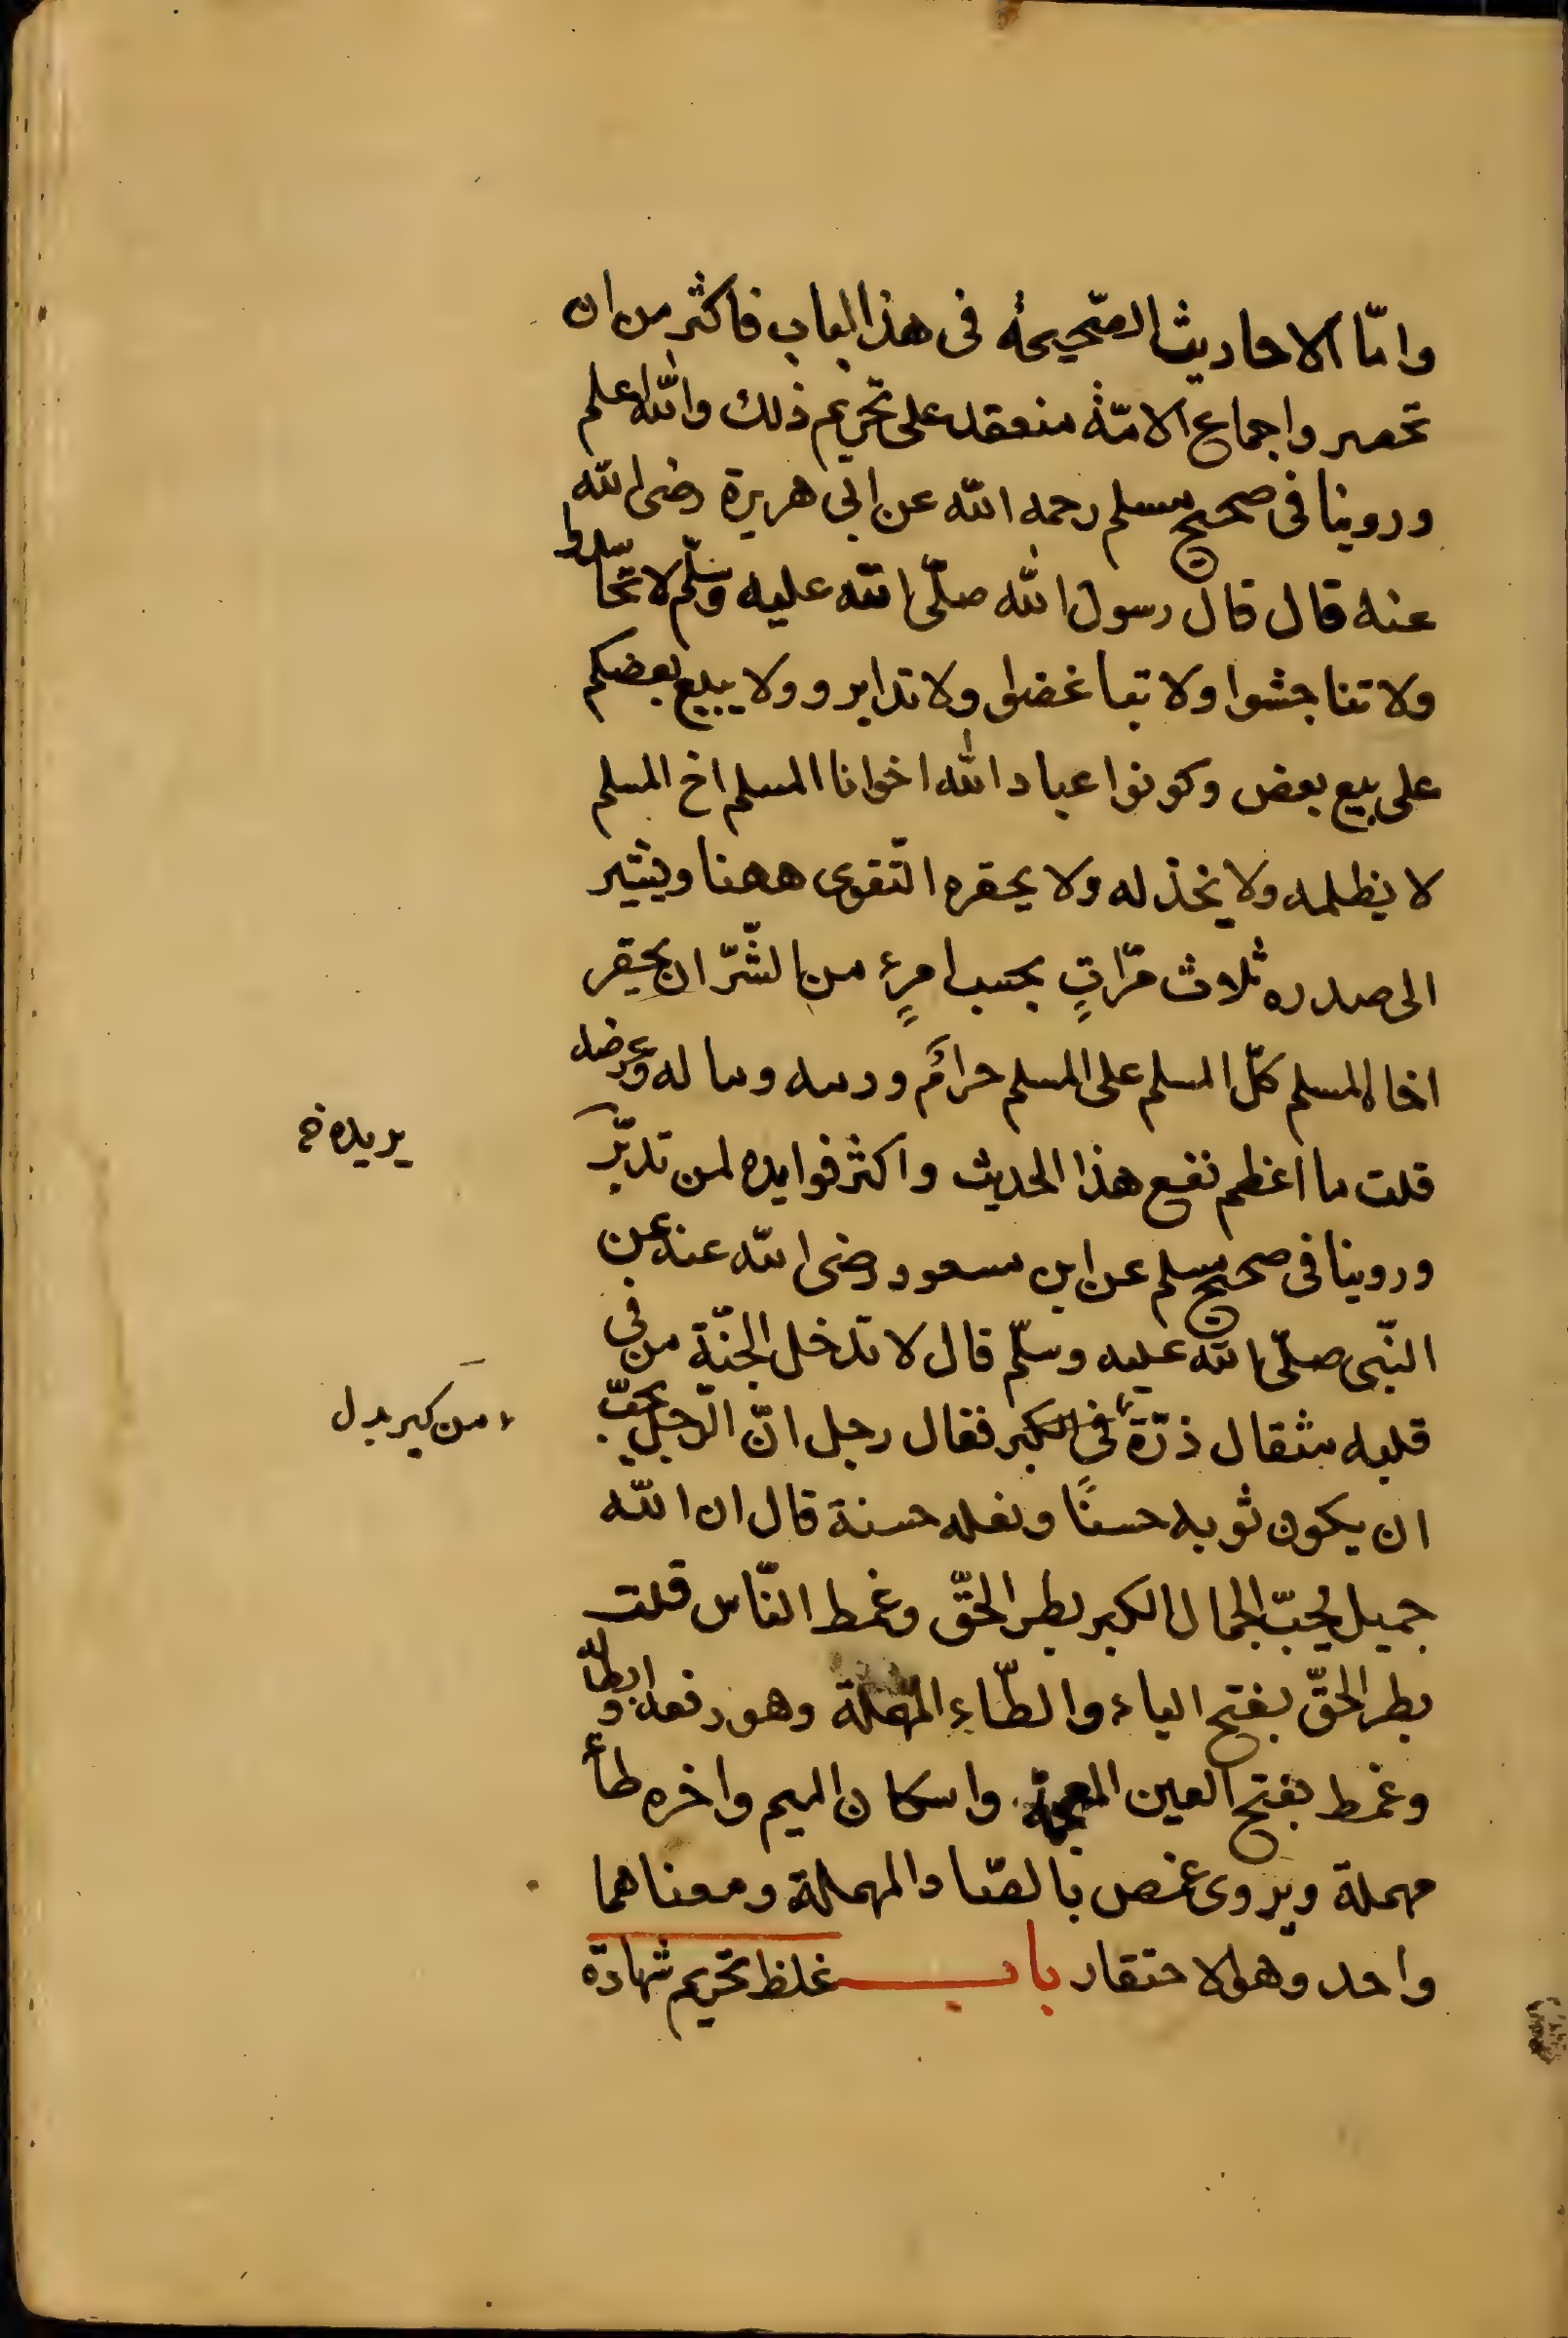 وامّا الاحاديث الصّحيحة فى هذا الباب فاكثر من ان
تحصر واجماع الامّة منعقد على تحريم ذلك والله اعلم
وروينا فى صحيح مسلم رحمه الله عن ابى هريرة رضى الله
عنه قال قال رسول الله صلّى الله عليه وسلّم لا تحاسدوا
ولا تناجشوا ولا تباغضوا ولا تدابرو ولا يبيع بعضكم
على بيع بعض وكونوا عباد الله اخوانا المسلم اخ المسلم
لا يظلمه ولا يخذله ولا يحقره التّقوى ههنا ويشير
الى صدره ثلاث مرّاتٍ بحسب امرٍء من الشّرّ ان يحقر
اخاه المسلم كلّ المسلم على المسلم حرامٌ ودمه وماله وعرضه
قلت ما اعظم نفع هذا الحديث واكثر فوايده لمن تدبّر
وروينا فى صحيح مسلم عن ابن مسعود رضى الله عنه عن
النّبى صلّى الله عليه وسلّم قال لا تدخل الجنّة من فى
قلبه مثقال ذرّة فى الكبر فقال رجل انّ الرّجل يحبّ
ان يكون ثوبه حسنًا ونعله حسنة قال ان الله
جميل يحبّ الجمال الكبر بطر الحقّ وغمط النّاس قلت
بطر الحقّ بفتح الباء والطّاء المهملة وهو دفعه وابطا
وغمط بفتح الغين المعجمة واسكان الميم واخره طاء
مهملة ويروى غمص بالصّاد المهملة ومعناهما
واحد وهو الاحتقار باب غلظ تحريم شهادة
من كبر بدل